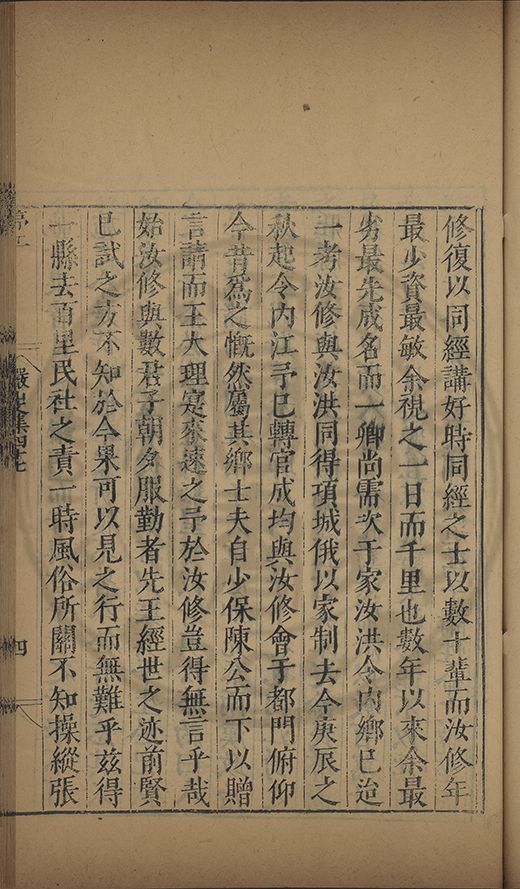 修復以同經講好時同經之士以數十輩而汝修年
最少資最敏余視之一日而千里也數年以來余最
劣最先成名而一卿尚需次于家汝洪令內鄉已迨
一考汝修與汝洪同得項城俄以家制去今庚辰之
秋起令內江予已轉官成均與汝修會于都門俯仰
今昔爲之慨然屬其鄉士夫自少保陳公而下以贈
言請而王大理寔來速之予於汝修豈得無言乎哉
始汝修與數君子朝夕服勤者先王經世之迹前賢
已試之方不知於今果可以見之行而無難乎茲得
一縣去百里民社之責一時風俗所關不知操縱張
四